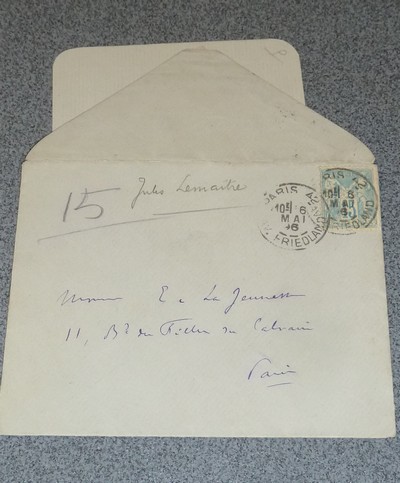 Jules Lemaitre
15
PARIS
10H 6
MAI
6
AV. FRIEDLAND
PARIS
10H 6
MAI
6
FRIEDLAND
Monsieur E. La Jeunesse
11, Bd du Filles du Calvaire
Paris